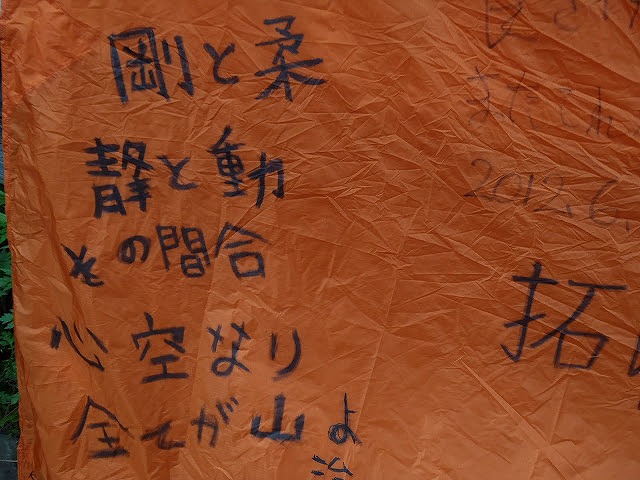 剛と柔
静と動
その間合
心空なり
全てが山よ
2012.6.
拓